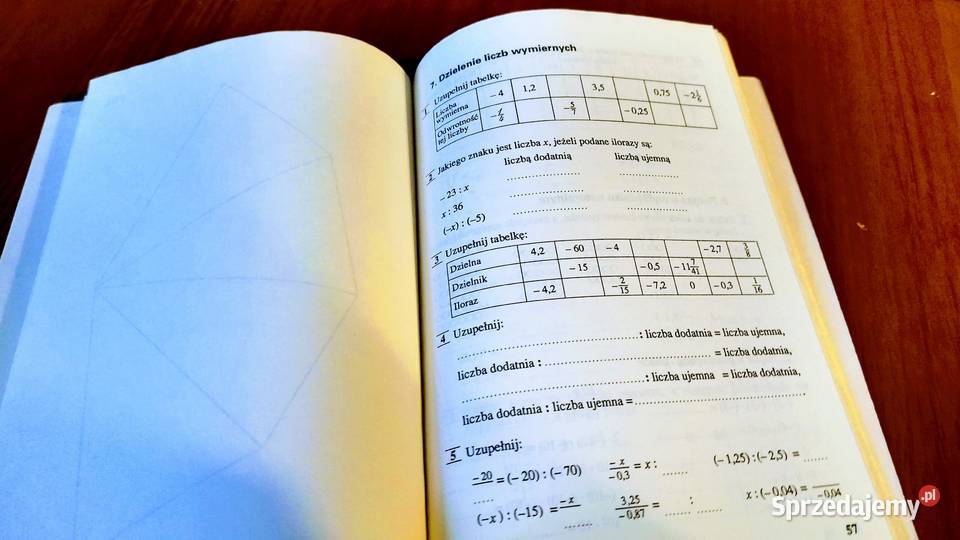 7. Dzielenie liczb wymiernych
1 Uzupełnij tabelkę:
Liczba wymierna -4 1,2 3,5 0,75 -2 1/6
Odwrotność tej liczby -1/4 -5/7 -0,25
2 Jakiego znaku jest liczba x, jeżeli podane ilorazy są:
liczbą dodatnią liczbą ujemną
-23 : x ................ ................
x : 36 ................ ................
(-x) : (-5) ................ ................
3 Uzupełnij tabelkę:
Dzielna 4,2 -60 -4 -2,7 3/8
Dzielnik -15 -0,5 -11 7/41
Iloraz -4,2 -2/15 -7,2 0 -0,3 1/16
4 Uzupełnij:
................ : liczba dodatnia = liczba ujemna,
liczba dodatnia : ................ = liczba dodatnia,
................ : liczba ujemna = liczba dodatnia,
liczba dodatnia : liczba ujemna = ................
5 Uzupełnij:
-20/..... = (-20) : (-70) -x/-0,3 = x : ....... (-1,25) : (-2,5) = .......
(-x) : (-15) = -x/....... 3,25/-0,87 = ...... : ...... x : (-0,04) = /-0,04
57
Sprzedajemy.pl